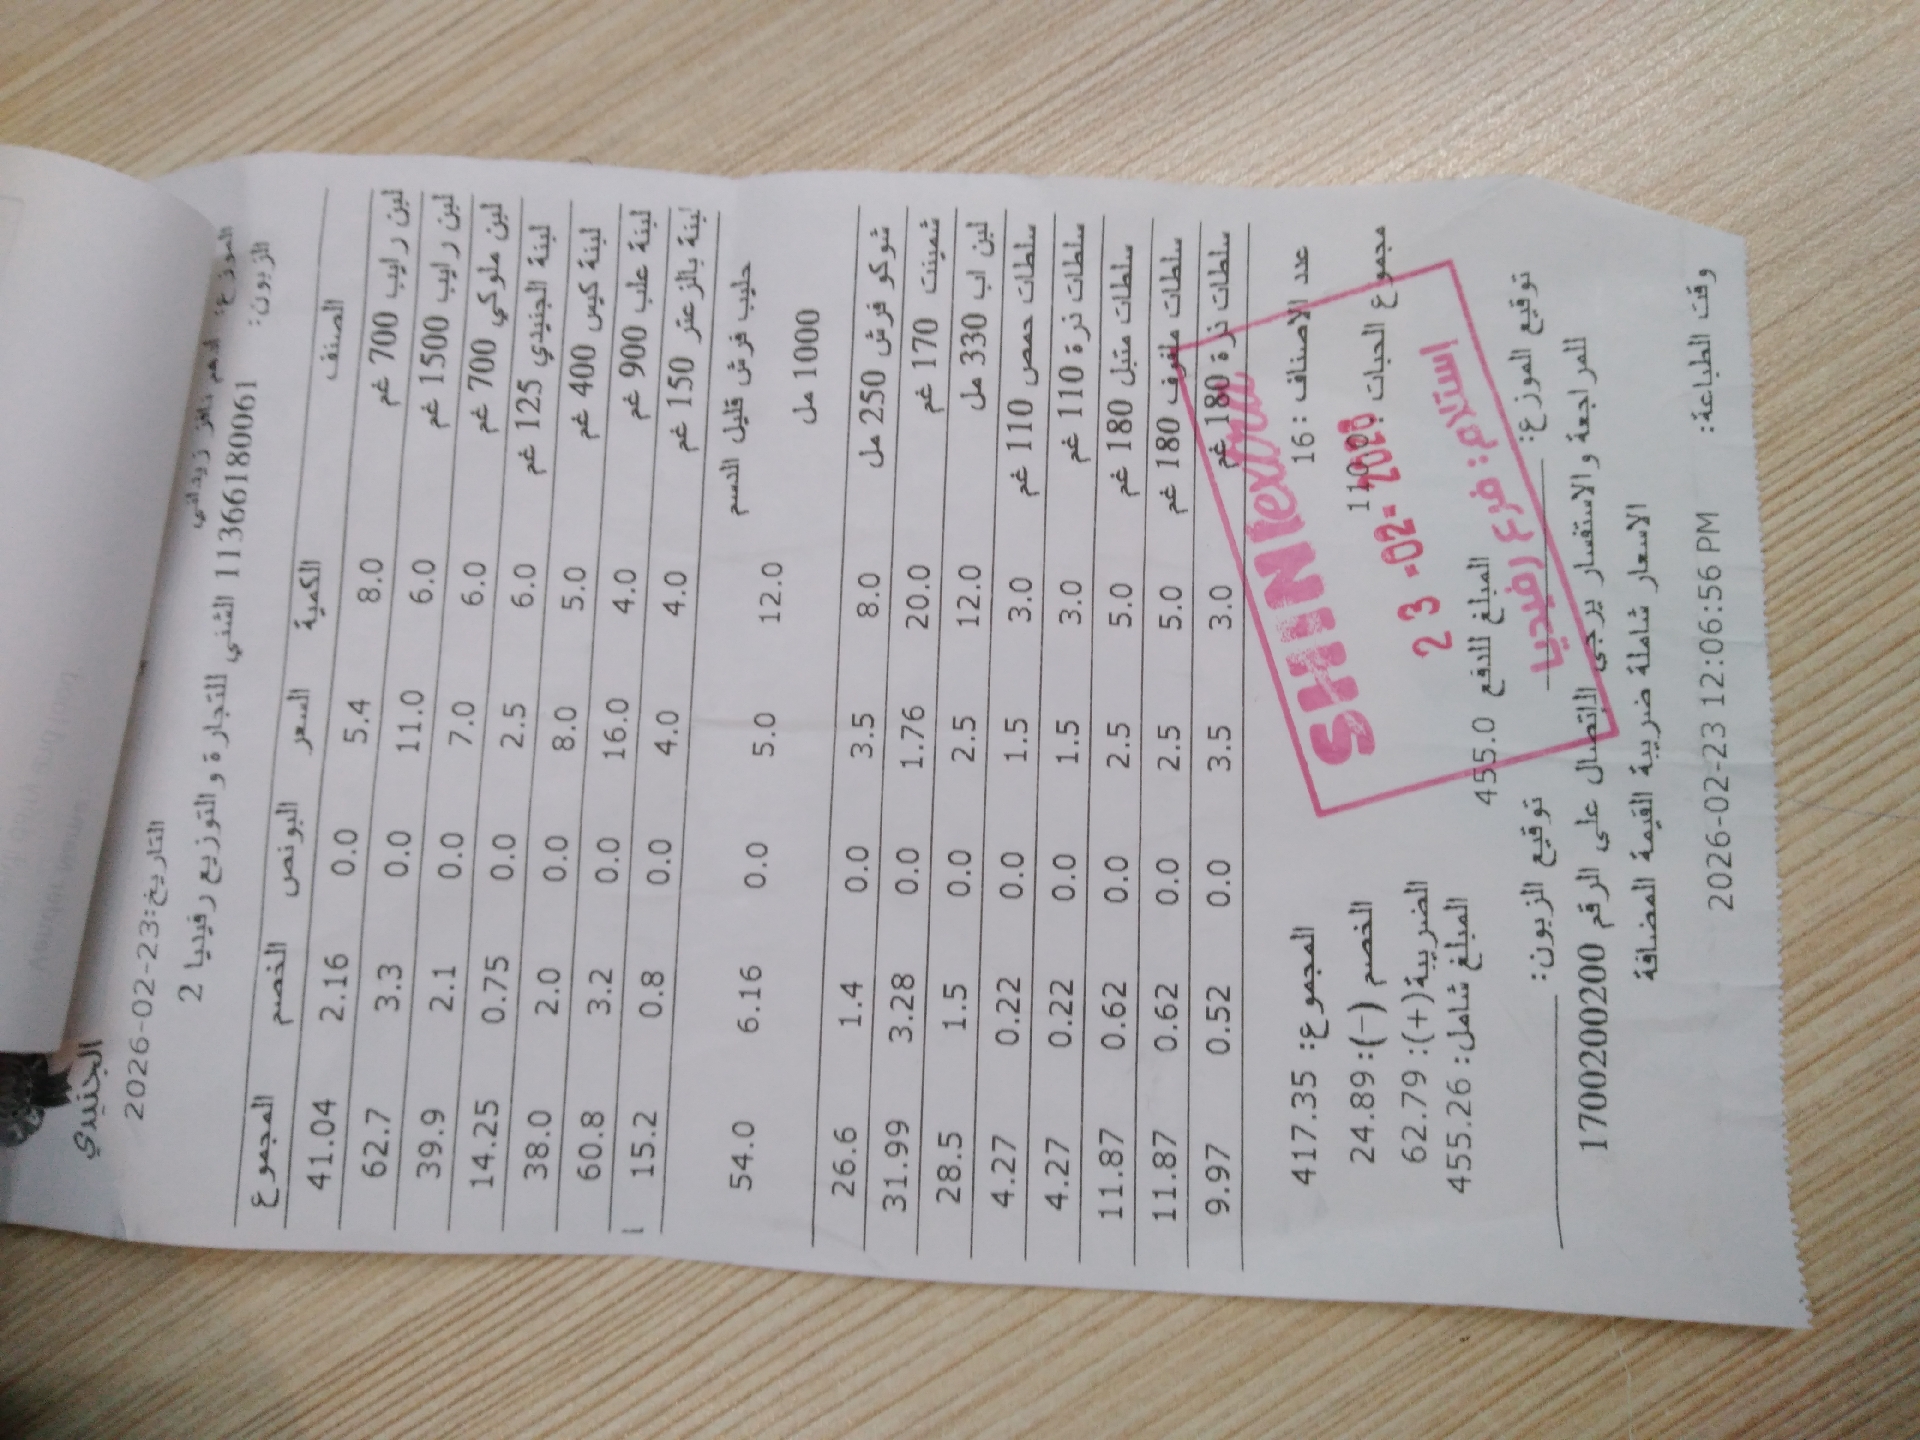 الجنيدي
التاريخ:23-02-2026
الموزع: ادهم نافز زيداني
الزبون: 1136618006‎1 الشني للتجارة والتوزيع رفيديا 2
الصنف الكمية السعر البونص الخصم المجموع
لبن رايب 700 غم 8.0 5.4 0.0 2.16 41.04
لبن رايب 1500 غم 6.0 11.0 0.0 3.3 62.7
لبن ملوكي 700 غم 6.0 7.0 0.0 2.1 39.9
لبنة الجنيدي 125 غم 6.0 2.5 0.0 0.75 14.25
لبنة كيس 400 غم 5.0 8.0 0.0 2.0 38.0
لبنة علب 900 غم 4.0 16.0 0.0 3.2 60.8
لبنة بالزعتر 150 غم 4.0 4.0 0.0 0.8 15.2
حليب فرش قليل الدسم 12.0 5.0 0.0 6.16 54.0
1000 مل
شوكو فرش 250 مل 8.0 3.5 0.0 1.4 26.6
شمينت 170 غم 20.0 1.76 0.0 3.28 31.99
لبن اب 330 مل 12.0 2.5 0.0 1.5 28.5
سلطات حمص 110 غم 3.0 1.5 0.0 0.22 4.27
سلطات ذرة 110 غم 3.0 1.5 0.0 0.22 4.27
سلطات متبل 180 غم 5.0 2.5 0.0 0.62 11.87
سلطات ملفوف 180 غم 5.0 2.5 0.0 0.62 11.87
سلطات ذرة 180 غم 3.0 3.5 0.0 0.52 9.97
عدد الاصناف :16 المجموع: 417.35
مجموع الحبات: الخصم (-): 24.89
الضريبة(+): 62.79
المبلغ للدفع 455.0 المبلغ شامل: 455.26
SHINI extra
23 -02- 2026
استلام: فرع رفيديا
توقيع الموزع: توقيع الزبون:
للمراجعة والاستفسار يرجى الاتصال على الرقم 1700200200
الاسعار شاملة ضريبة القيمة المضافة
وقت الطباعة: 2026-02-23 12:06:56 PM